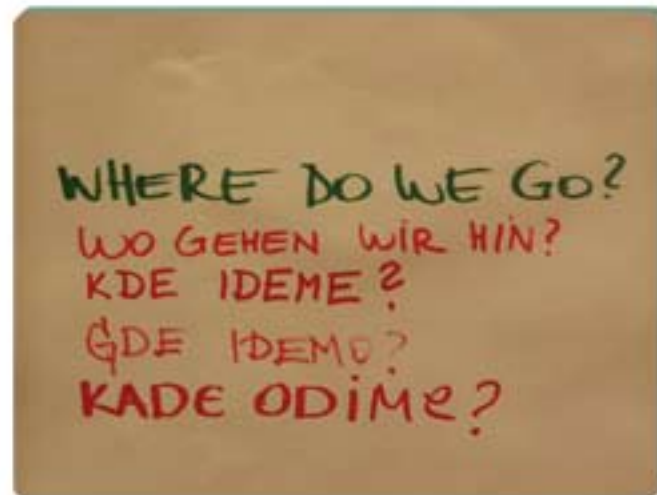 WHERE DO WE GO?
WO GEHEN WIR HIN?
KDE IDEME?
GDE IDEMO?
KADE ODIMe?